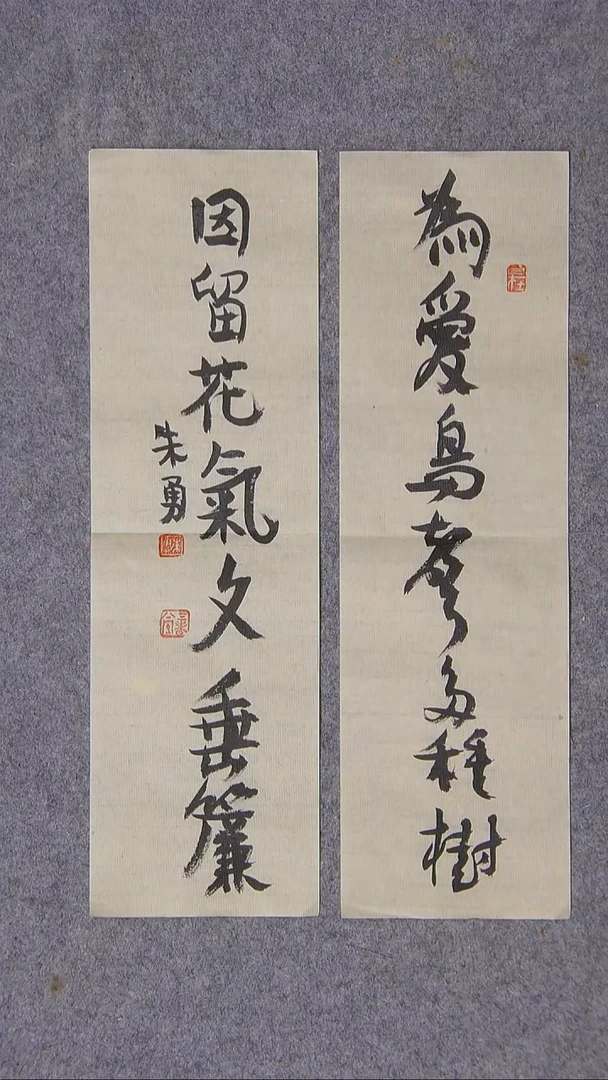 為愛鳥聲多種樹
因留花氣久垂簾
朱勇